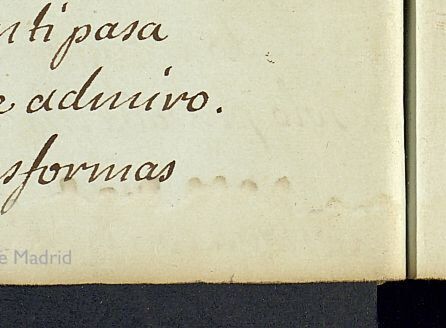 nti pasa
e admiro.
sformas
e Madrid